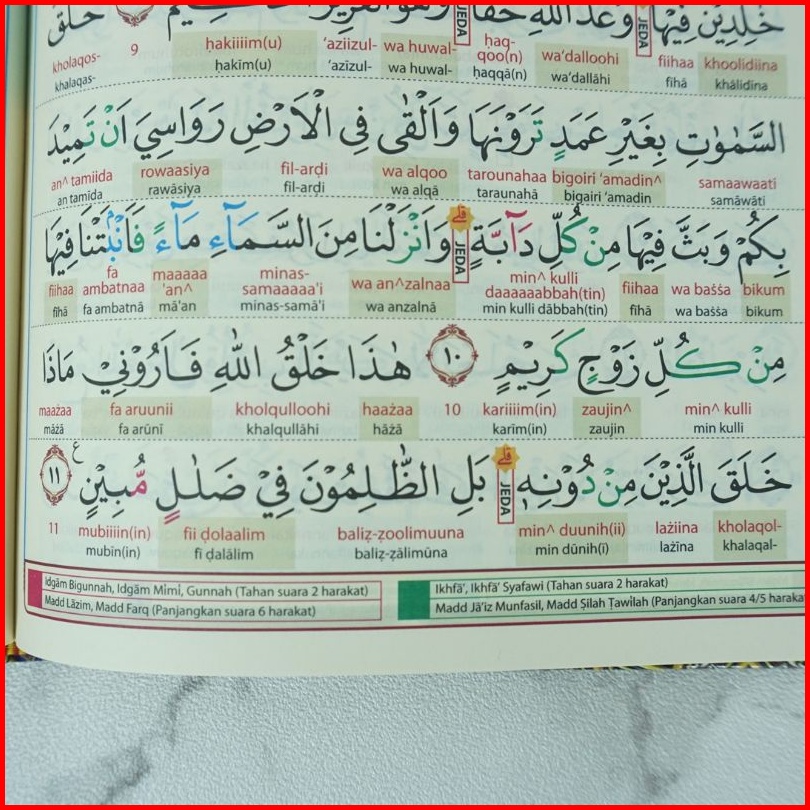 خٰلِدِيْنَ فِيْهَا وَعْدَ اللّٰهِ حَقًّا وَهُوَ الْعَزِيْزُ ٩ خَلَقَ
JEDA JEDA
khoolidiina fiihaa wa‘dalloohi haq-qoo(n) wa huwal- ‘aziizul- ḥakiiiim(u) 9 kholaqos-
khālidīna fīhā wa‘dallāhi ḥaqqā(n) wa huwal- ‘azīzul- ḥakīm(u) khalaqas-
السَّمٰوٰتِ بِغَيْرِ عَمَدٍ تَرَوْنَهَا وَاَلْقٰى فِى الْاَرْضِ رَوَاسِيَ اَنْ تَمِيْدَ
samaawaati bigoiri ‘amadin^ tarounahaa wa alqoo fil-arḍi rowaasiya an^ tamiida
samāwāti bigairi ‘amadin taraunahā wa alqā fil-arḍi rawāsiya an tamīda
بِكُمْ وَبَثَّ فِيْهَا مِنْ كُلِّ دَاۤبَّةٍۗ وَاَنْزَلْنَا مِنَ السَّمَاۤءِ مَاۤءً فَاَنْۢبَتْنَا فِيْهَا
JEDA
bikum wa bašša fiihaa min^ kulli daaaaaabbah(tin) wa an^zalnaa minas-samaaaaa'i maaaaa'an^ fa ambatnaa fiihaa
bikum wa bašša fīhā min kulli dābbah(tin) wa anzalnā minas-samā'i mā'an fa ambatnā fīhā
مِنْ كُلِّ زَوْجٍ كَرِيْمٍ ١٠ هٰذَا خَلْقُ اللّٰهِ فَاَرُوْنِيْ مَاذَا
min^ kulli zaujin^ kariiiim(in) 10 haażaa kholqulloohi fa aruunii maażaa
min kulli zaujin karīm(in) hāżā khalqullāhi fa arūnī māżā
خَلَقَ الَّذِيْنَ مِنْ دُوْنِهٖۗ بَلِ الظّٰلِمُوْنَ فِيْ ضَلٰلٍ مُّبِيْنٍ ࣖ ١١
JEDA
kholaqol- lażiina min^ duunih(ii) baliẓ-ẓoolimuuna fii ḍolaalim mubiiiin(in) 11
khalaqal- lażīna min dūnih(ī) baliẓ-ẓālimūna fī ḍalālim mubīn(in)
Idgām Bigunnah, Idgām Mīmī, Gunnah (Tahan suara 2 harakat) Ikhfā', Ikhfā' Syafawi (Tahan suara 2 harakat)
Madd Lāzim, Madd Farq (Panjangkan suara 6 harakat) Madd Jā'iz Munfasil, Madd Ṣilah Ṭawīlah (Panjangkan suara 4/5 harakat